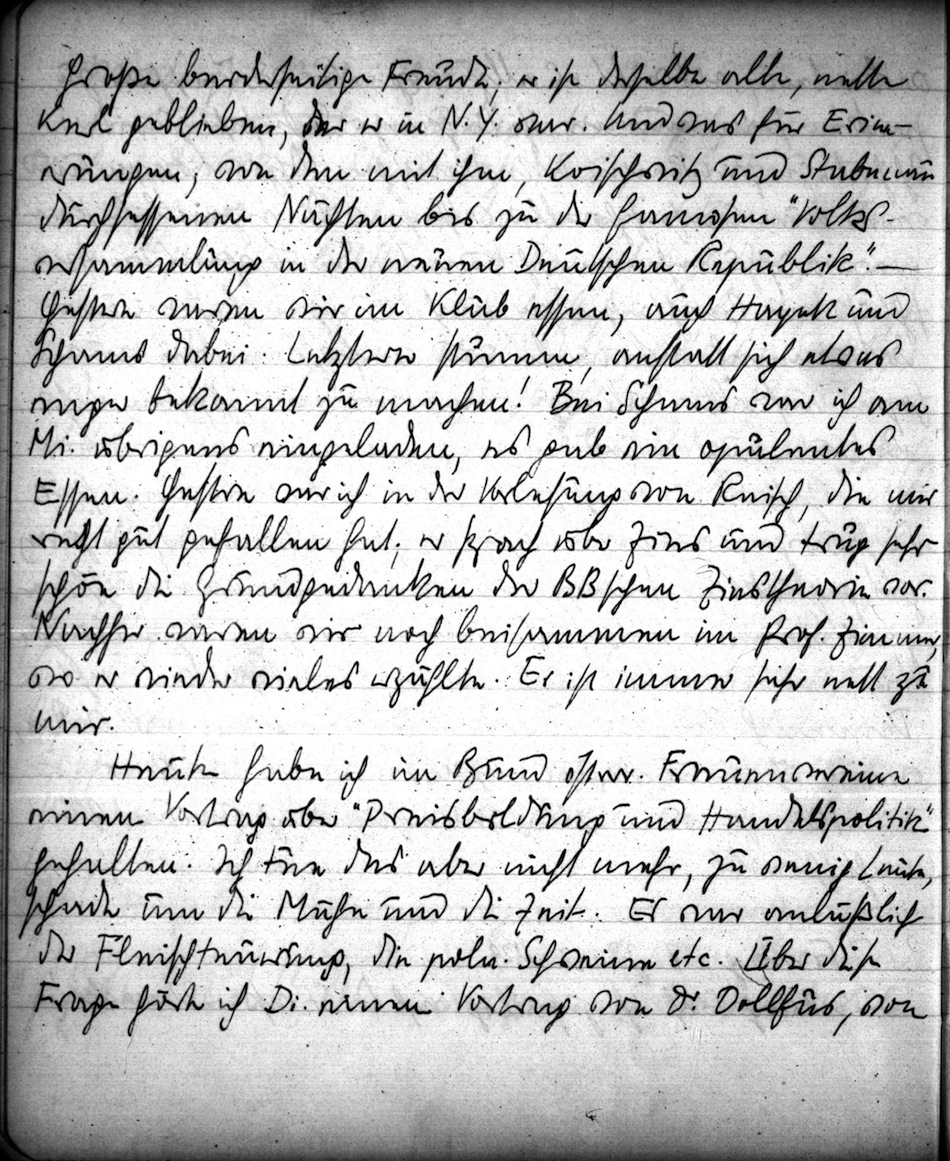 Große beiderseitige Freude, er ist derselbe alte, nette
Kerl geblieben, der er in N.Y. war. Und was für Erin-
nerungen, von den mit ihm, und
durchsessenen Nächten bis zu der famosen "Volks-
versammlung in der neuen Deutschen Republik". —
Gestern waren wir im Klub essen, auch Hayek und
Schams dabei. Letzterer stumm, anstatt sich etwas
mehr bekannt zu machen! Bei Schams war ich am
Mi. übrigens eingeladen, es gab ein opulentes
Essen. Gestern war ich in der Vorlesung von Reisch, die mir
recht gut gefallen hat; er sprach über Zins und trug sehr
schön die Grundgedanken der BBschen Zinstheorie vor.
Nachher waren wir noch beisammen im Prof. Zimmer,
wo er wieder vieles erzählte. Er ist immer sehr nett zu
mir.
Heute habe ich im Bund österr. Frauenvereine
einen Vortrag über "Preisbildung und Handelspolitik"
gehalten. Ich tue das aber nicht mehr, zu wenig Leute,
schade um die Mühe und die Zeit. Es war anläßlich
der Fleischteuerung, die poln. Schweine etc. Über diese
Frage höre ich Di. einen Vortrag von Dr Dollfus, von